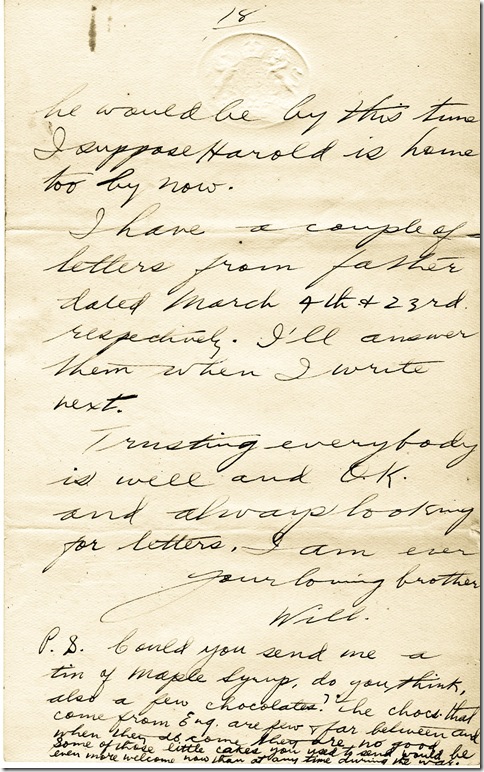 18
he would be by this time
I suppose Harold is home
too by now.
I have a couple of
letters from father
dated March 4th & 23rd
respectively. I'll answer
them when I write
next.
Trusting everybody
is well and O.K.
and always looking
for letters. I am ever
your loving brother
Will.
P.S. Could you send me a
tin of Maple Syrup, do you think,
also a few chocolates? The chocs. that
come from Eng. are few & far between and
when they do come they are no good.
Some of those little cakes you used to send would be
even more welcome now than at any time during the war.